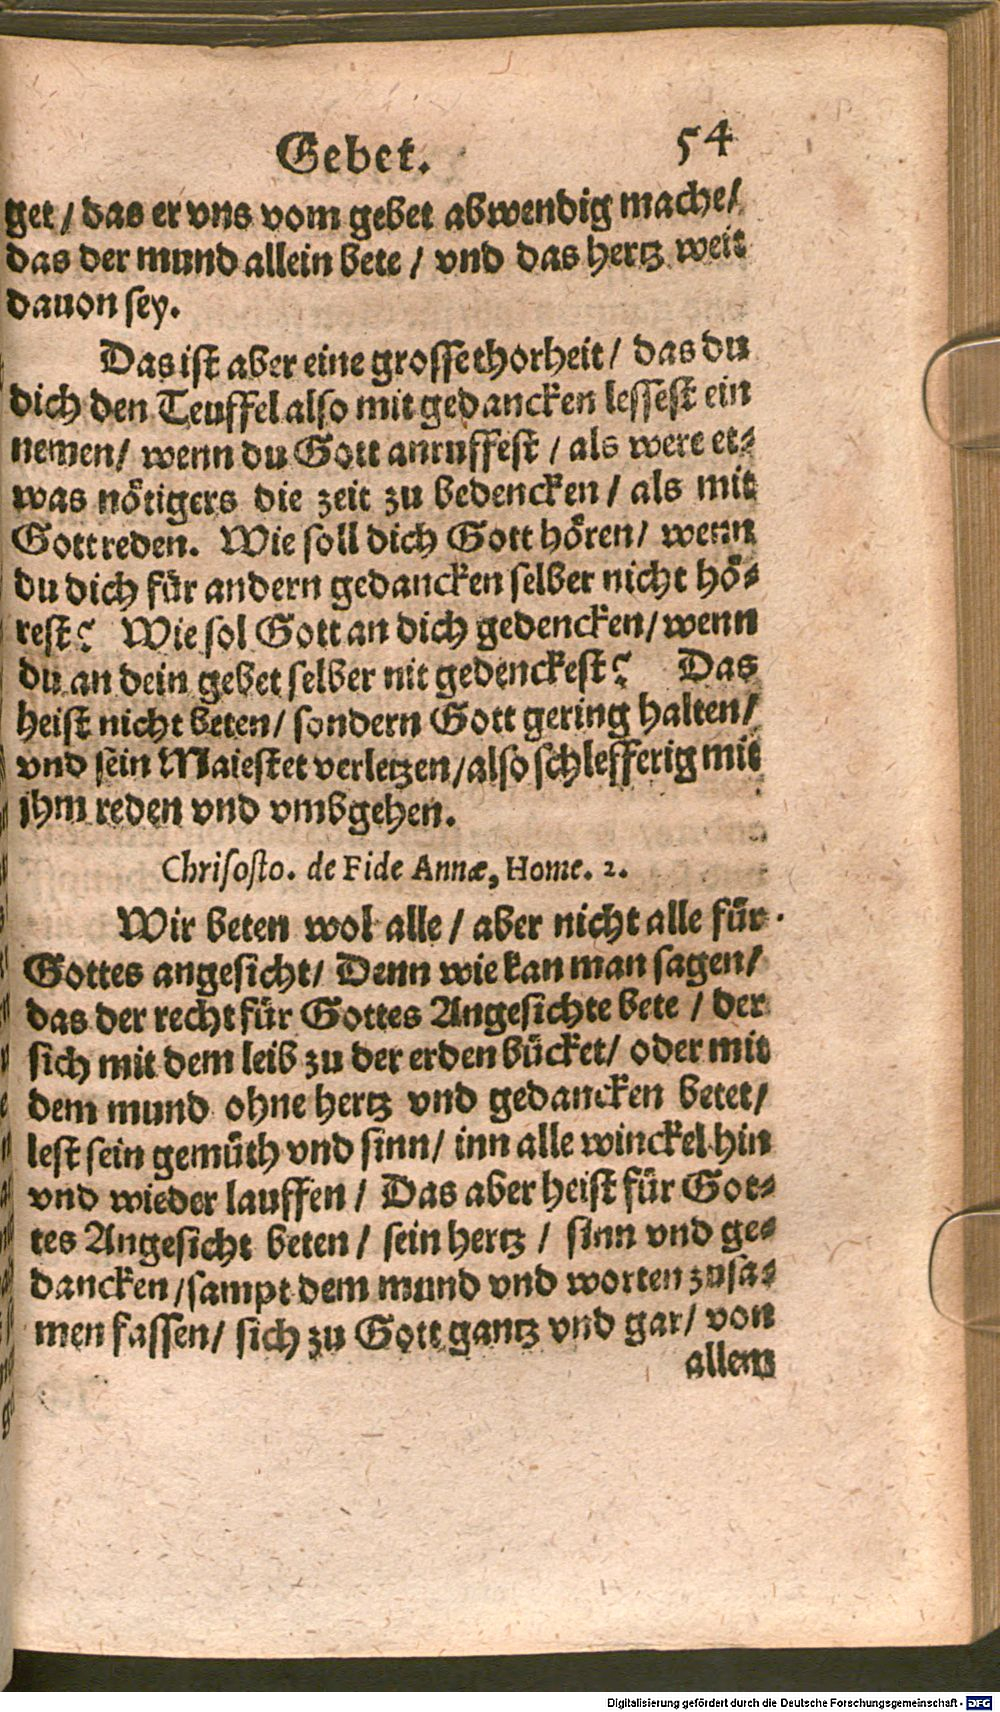 Gebet. 54
get / das er vns vom gebet abwendig mache/
das der mund allein bete / vnd das hertz weit
dauon sey.
Das ist aber eine grosse thorheit / das du
dich den Teuffel also mit gedancken lessest ein
nemen/ wenn du Gott anruffest / als were et⸗
was nötigers die zeit zu bedencken / als mit
Gott reden. Wie soll dich Gott hören/ wenn
du dich für andern gedancken selber nicht hö⸗
rest? Wie sol Gott an dich gedencken/ wenn
du an dein gebet selber nit gedenckest? Das
heist nicht beten/ sondern Gott gering halten/
vnd sein Maiestet verletzen/ also schlefferig mit
jhm reden vnd vmbgehen.
Chrisosto. de Fide Annæ, Home. 2.
Wir beten wol alle / aber nicht alle für
Gottes angesicht/ Denn wie kan man sagen/
das der recht für Gottes Angesichte bete / der
sich mit dem leib zu der erden bücket/ oder mit
dem mund ohne hertz vnd gedancken betet/
lest sein gemüth vnd sinn/ inn alle winckel hin
vnd wieder lauffen / Das aber heist für Got⸗
tes Angesicht beten / sein hertz / sinn vnd ge⸗
dancken / sampt dem mund vnd worten zusa⸗
men fassen/ sich zu Gott gantz vnd gar/ von
allem
Digitalisierung gefördert durch die Deutsche Forschungsgemeinschaft - DFG